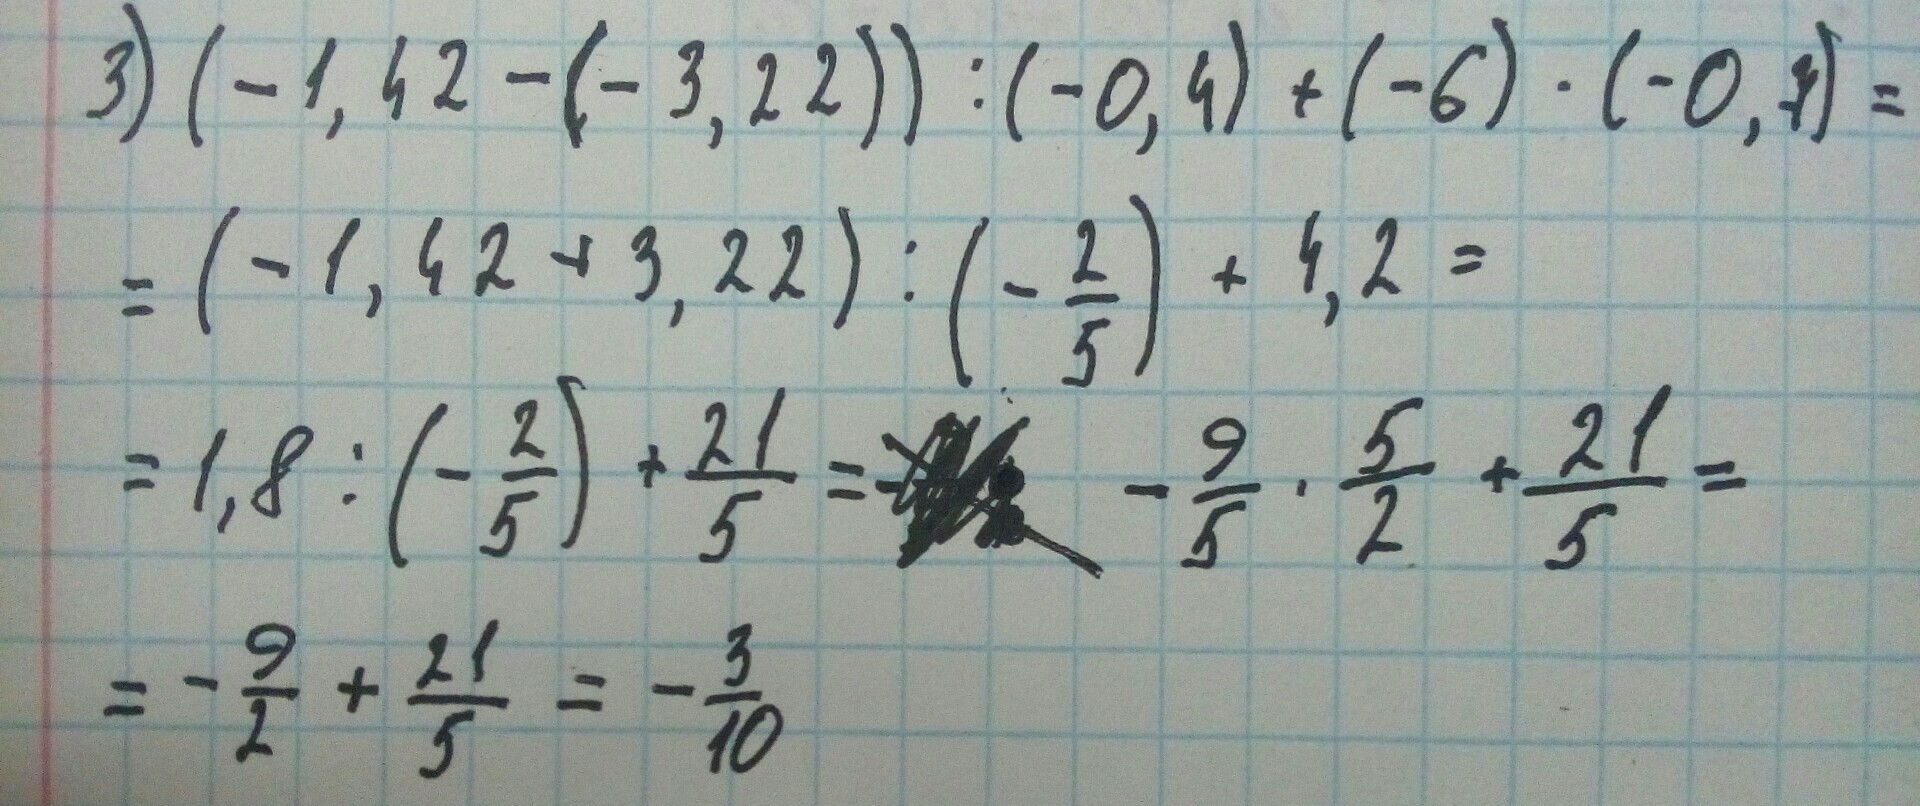 3) (-1,42 - (-3,22)) : (-0,4) + (-6) · (-0,7) =
= (-1,42 + 3,22) : (-2/5) + 4,2 =
= 1,8 : (-2/5) + 21/5 = -9/5 · 5/2 + 21/5 =
= -9/2 + 21/5 = -3/10